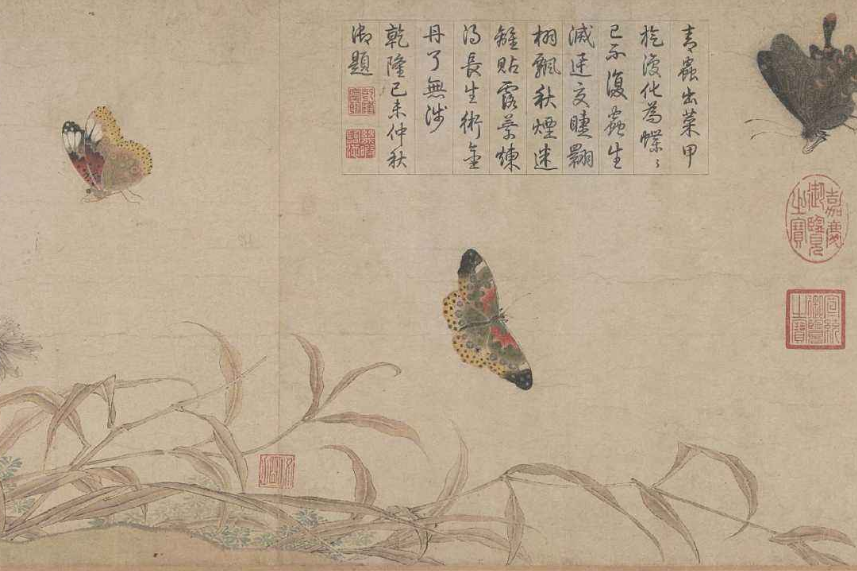 青蟲出菜甲
旋復化為蝶〻
已不復蟲生
滅遑交睫翾
栩飄秋煙迷
離貼露葉煉
得長生術金
丹了無涉
乾隆己未仲秋
御題
嘉慶御覽之寶
宣統御覽之寶